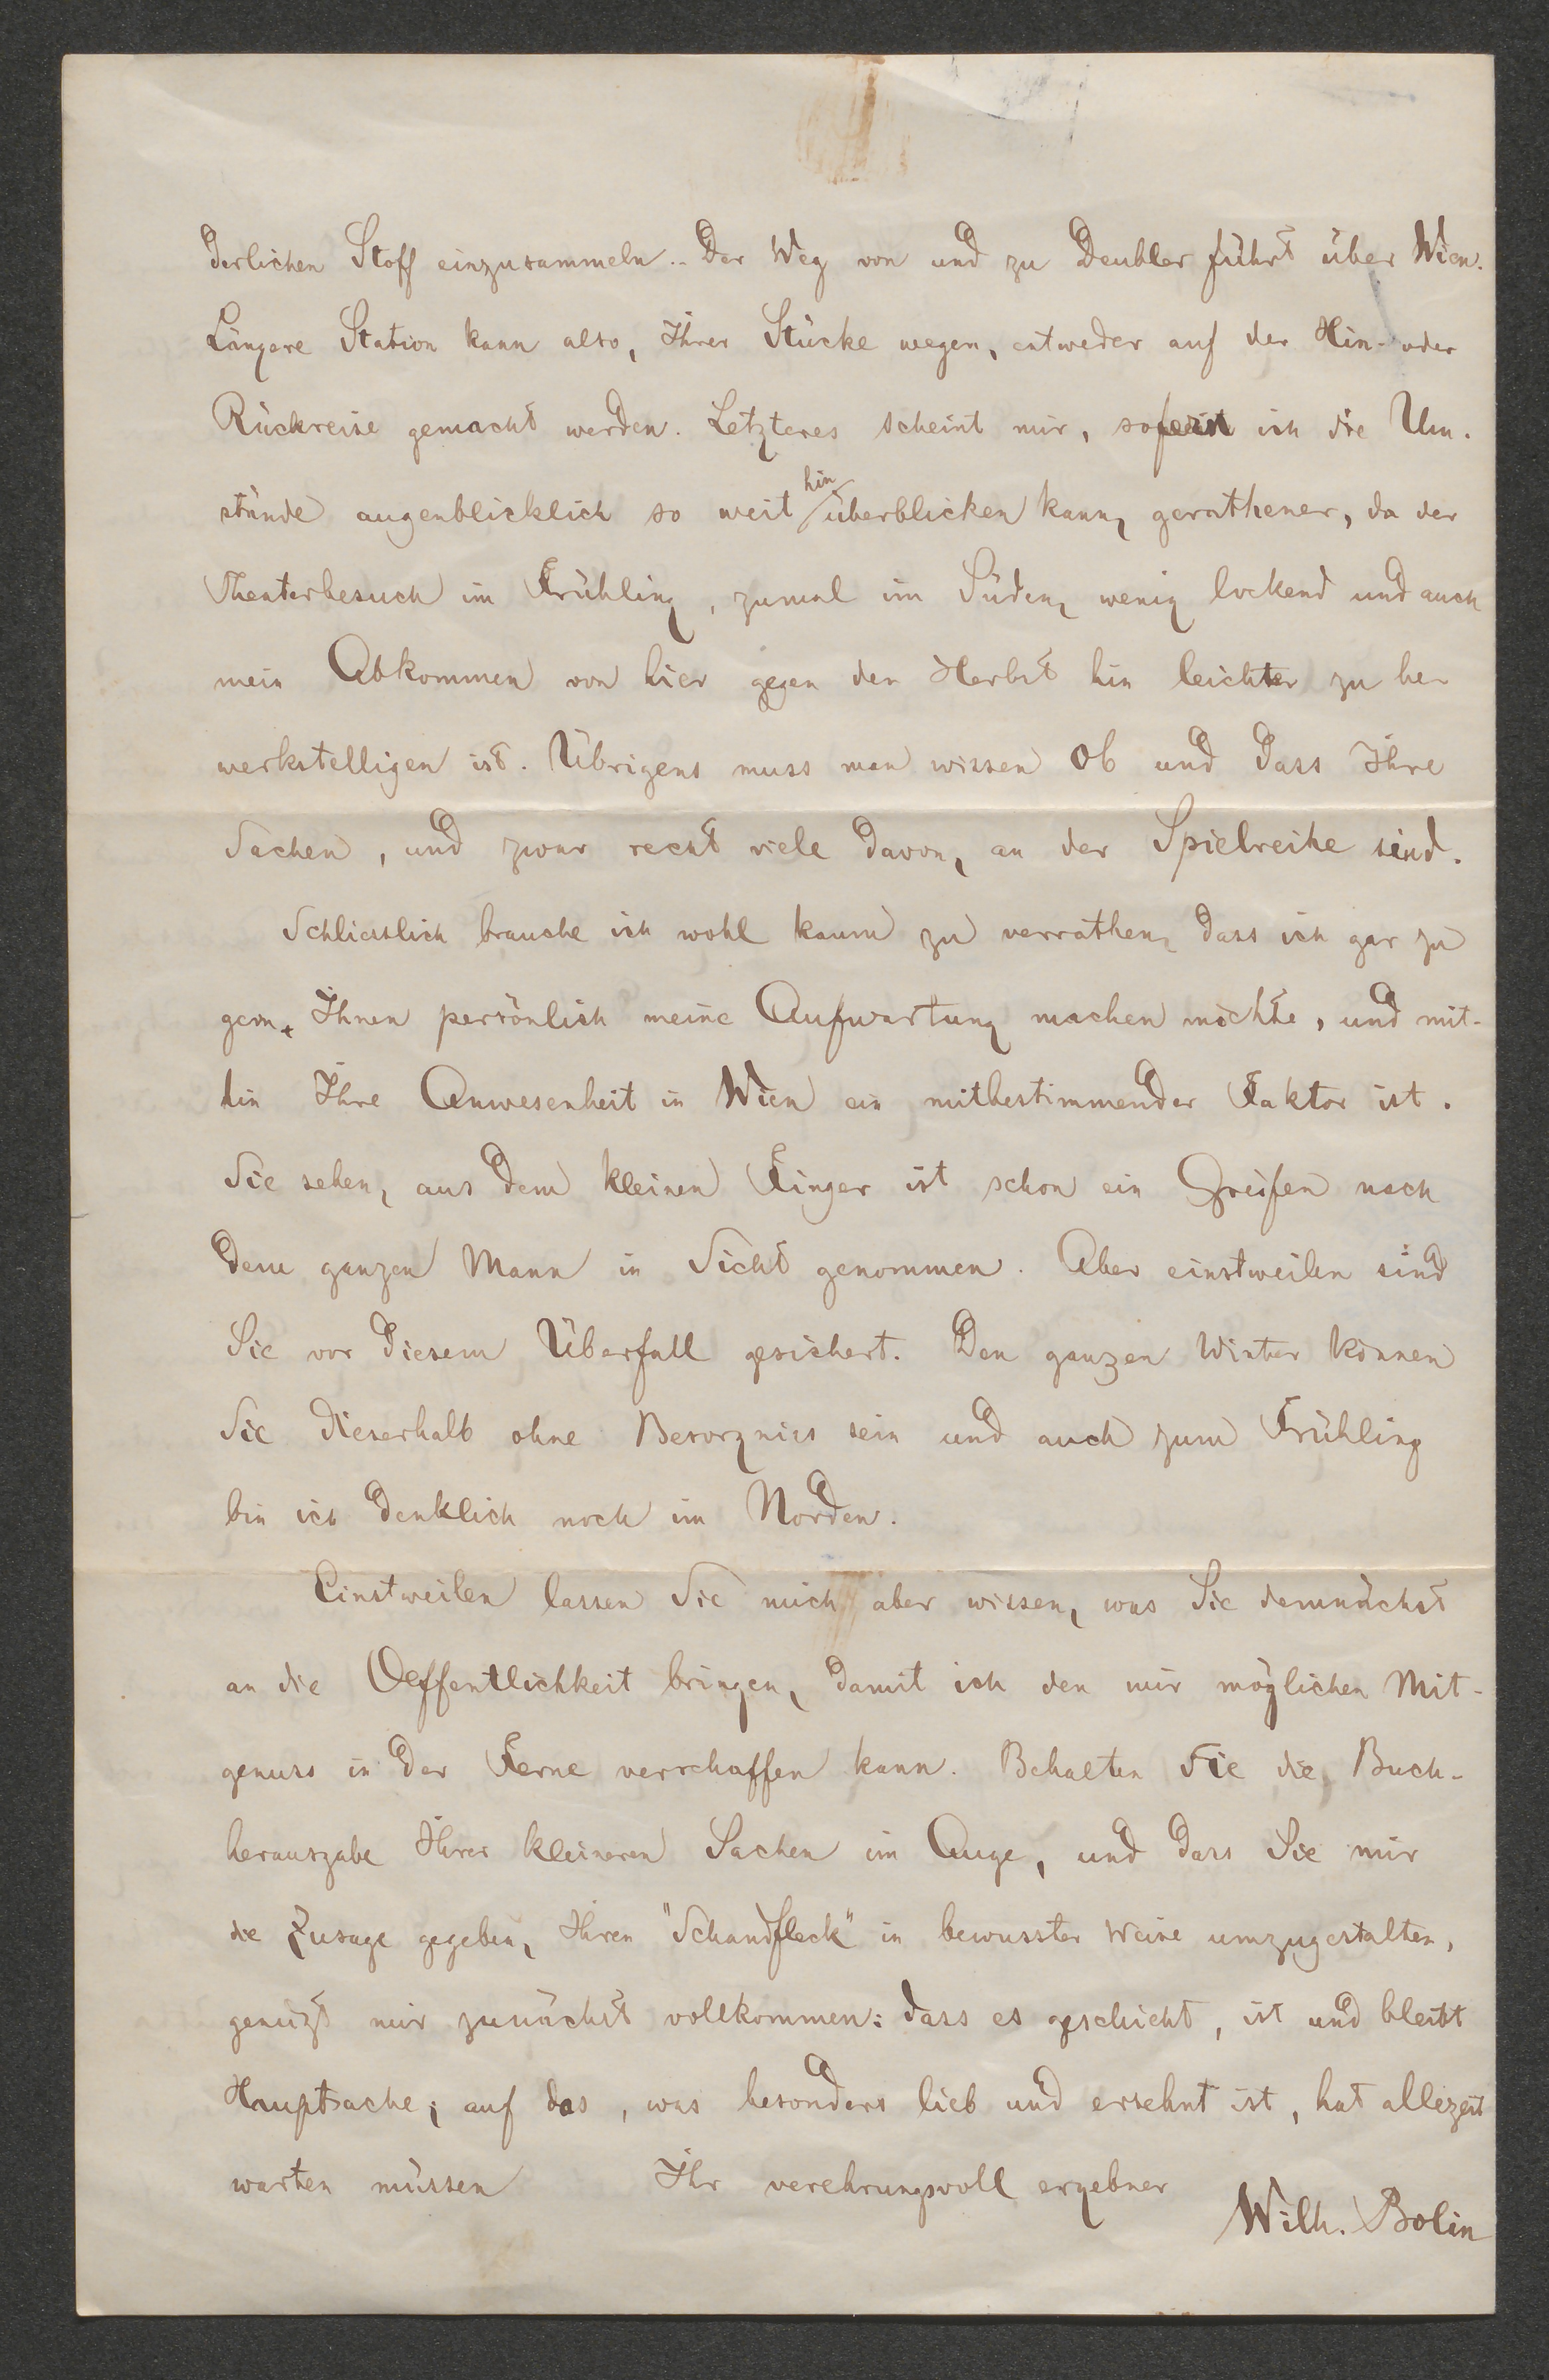 derlichen Stoff einzusammeln.. Der Weg von und zu Deubler führt über Wien.
Längere Station kann also, Ihrer Stücke wegen, entweder auf der Hin- oder
Rückreise gemacht werden. Letzteres scheint mir, sofern ich die Um-
stände augenblicklich so weit hin überblicken kann, gerathener, da der
Theaterbesuch im Frühling, zumal im Süden, wenig lockend und auch
mein Abkommen von hier gegen den Herbst hin leichter zu be-
werkstelligen ist. Übrigens muss man wissen ob und dass Ihre
Sachen, und zwar recht viele davon, an der Spielreihe sind.
Schliesslich brauche ich wohl kaum zu verrathen, dass ich gar zu
gern, Ihnen persönlich meine Aufwartung machen möchte, und mit-
hin Ihre Anwesenheit in Wien ein mitbestimmender Faktor ist.
Sie sehen, aus dem kleinen Finger ist schon ein Greifen nach
dem ganzen Mann in Sicht genommen. Aber einstweilen sind
Sie vor diesem Überfall gesichert. Den ganzen Winter können
Sie dieserhalb ohne Besorgniss sein und auch zum Frühling
bin ich denklich noch im Norden.
Einstweilen lassen Sie mich aber wissen, was Sie demnächst
an die Oeffentlichkeit bringen, damit ich den mir möglichen Mit-
genuss in der Ferne verschaffen kann. Behalten Sie die Buch-
herausgabe Ihrer kleineren Sachen im Auge, und dass Sie mir
die Zusage gegeben, Ihren "Schandfleck" in bewusster Weise umzugestalten,
genügt mir zunächst vollkommen: dass es geschieht, ist und bleibt
Hauptsache; auf das, was besonders lieb und ersehnt ist, hat allezeit
warten müssen Ihr verehrungsvoll ergebner
Wilh. Bolin